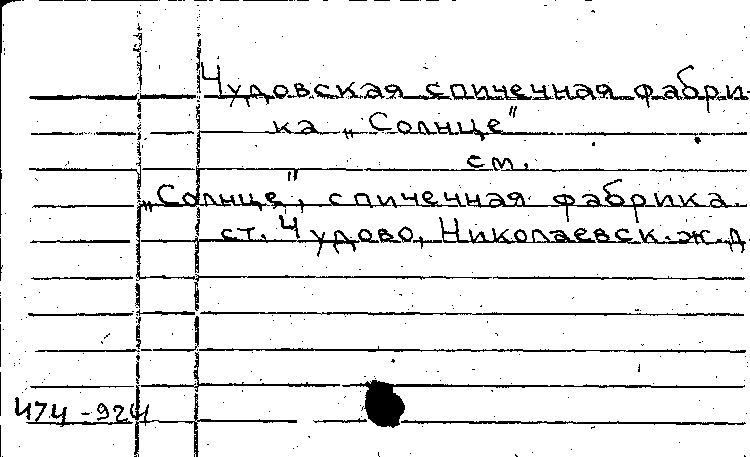 Чудовская спичечная фабри-
ка „Солнце"
см.
„Солнце", спичечная фабрика.
ст. Чудово, Николаевск. ж. д.
474-924